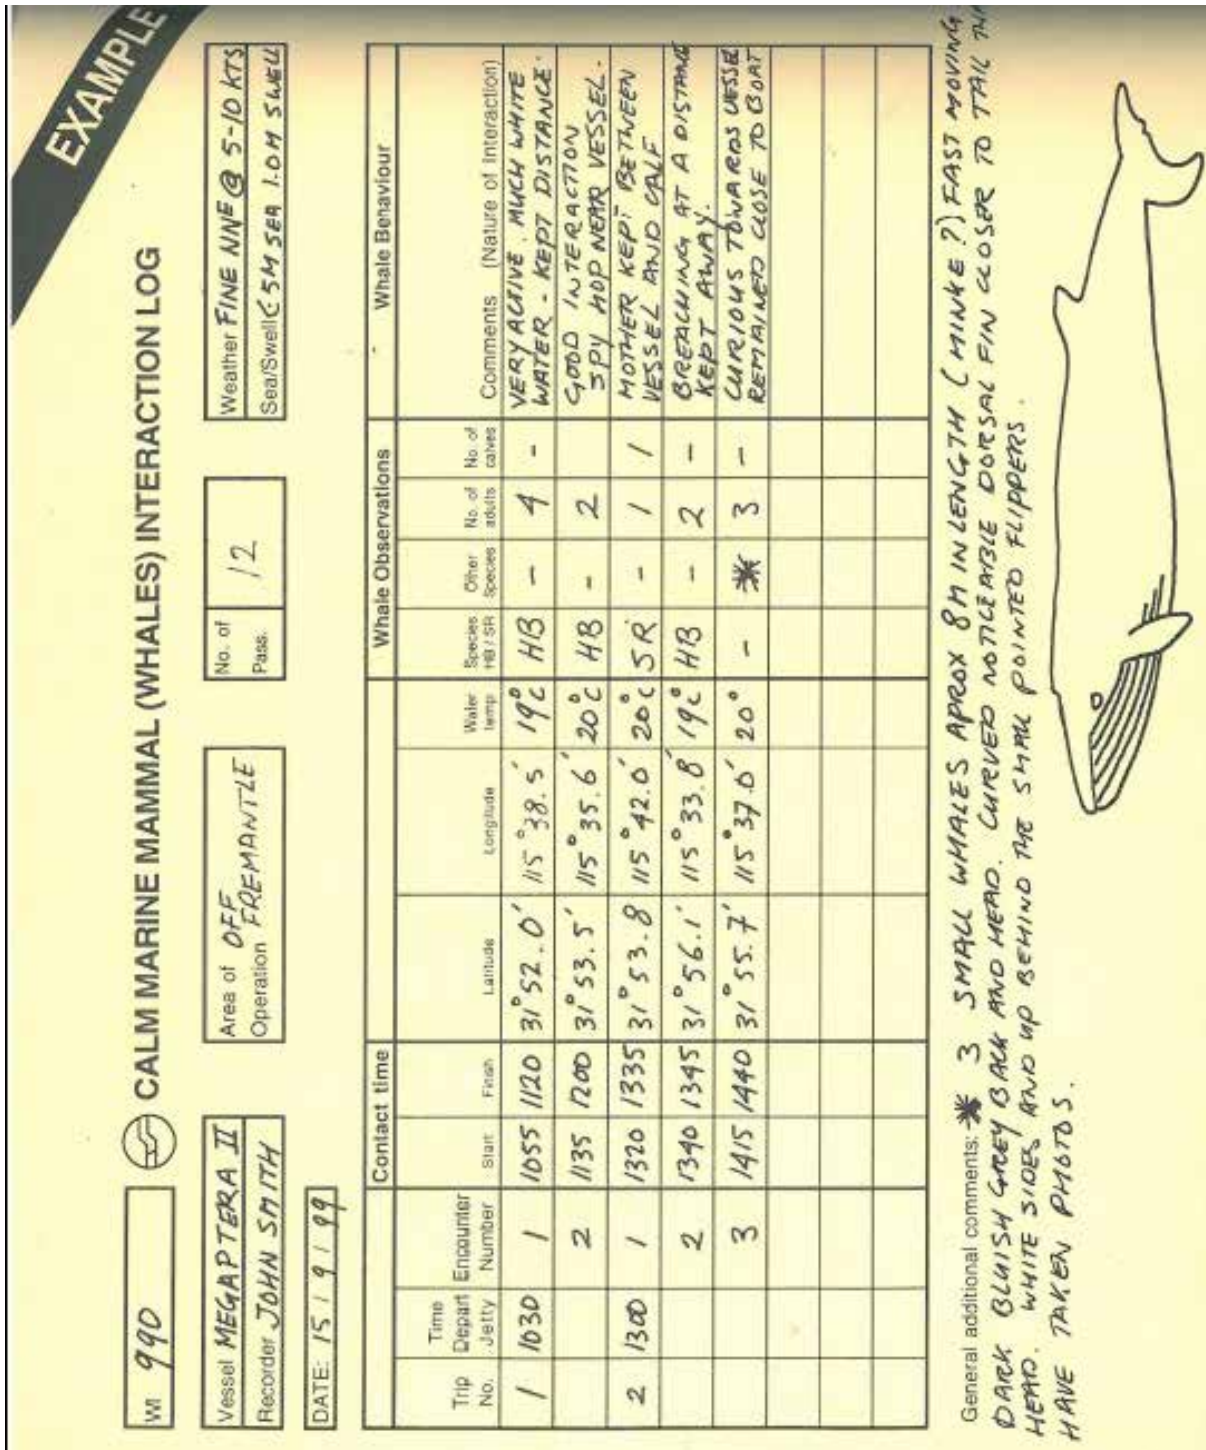 EXAMPLE
WI 990
CALM MARINE MAMMAL (WHALES) INTERACTION LOG
Vessel MEGAPTERA II
Recorder JOHN SMITH
Area of OFF
Operation FREMANTLE
No. of
Pass. 12
Weather FINE NNE @ 5-10 KTS
Sea/Swell <.5M SEA 1.0M SWELL
DATE: 15 / 9 / 99
Contact time Whale Observations Whale Behaviour
Trip No. Time Depart Jetty Encounter Number Start Finish Latitude Longitude Water temp Species HB / SR Other Species No. of adults No. of calves Comments (Nature of Interaction)
1 1030 1 1055 1120 31°52.0' 115°38.5' 19°C HB - 4 - VERY ACTIVE. MUCH WHITE
WATER - KEPT DISTANCE.
2 1135 1200 31°53.5' 115°35.6' 20°C HB - 2 GOOD INTERACTION
SPY HOP NEAR VESSEL.
2 1300 1 1320 1335 31°53.8 115°42.0' 20°C SR - 1 1 MOTHER KEPT BETWEEN
VESSEL AND CALF
2 1340 1345 31°56.1' 115°33.8' 19°C HB - 2 - BREACHING AT A DISTANCE
KEPT AWAY.
3 1415 1440 31°55.7' 115°37.0' 20° - * 3 - CURIOUS TOWARDS VESSEL
REMAINED CLOSE TO BOAT
General additional comments: * 3 SMALL WHALES APROX 8M IN LENGTH (MINKE?) FAST MOVING
DARK BLUISH GREY BACK AND HEAD. CURVED NOTICEABLE DORSAL FIN CLOSER TO TAIL THAN
HEAD. WHITE SIDES AND UP BEHIND THE SMALL POINTED FLIPPERS.
HAVE TAKEN PHOTOS.